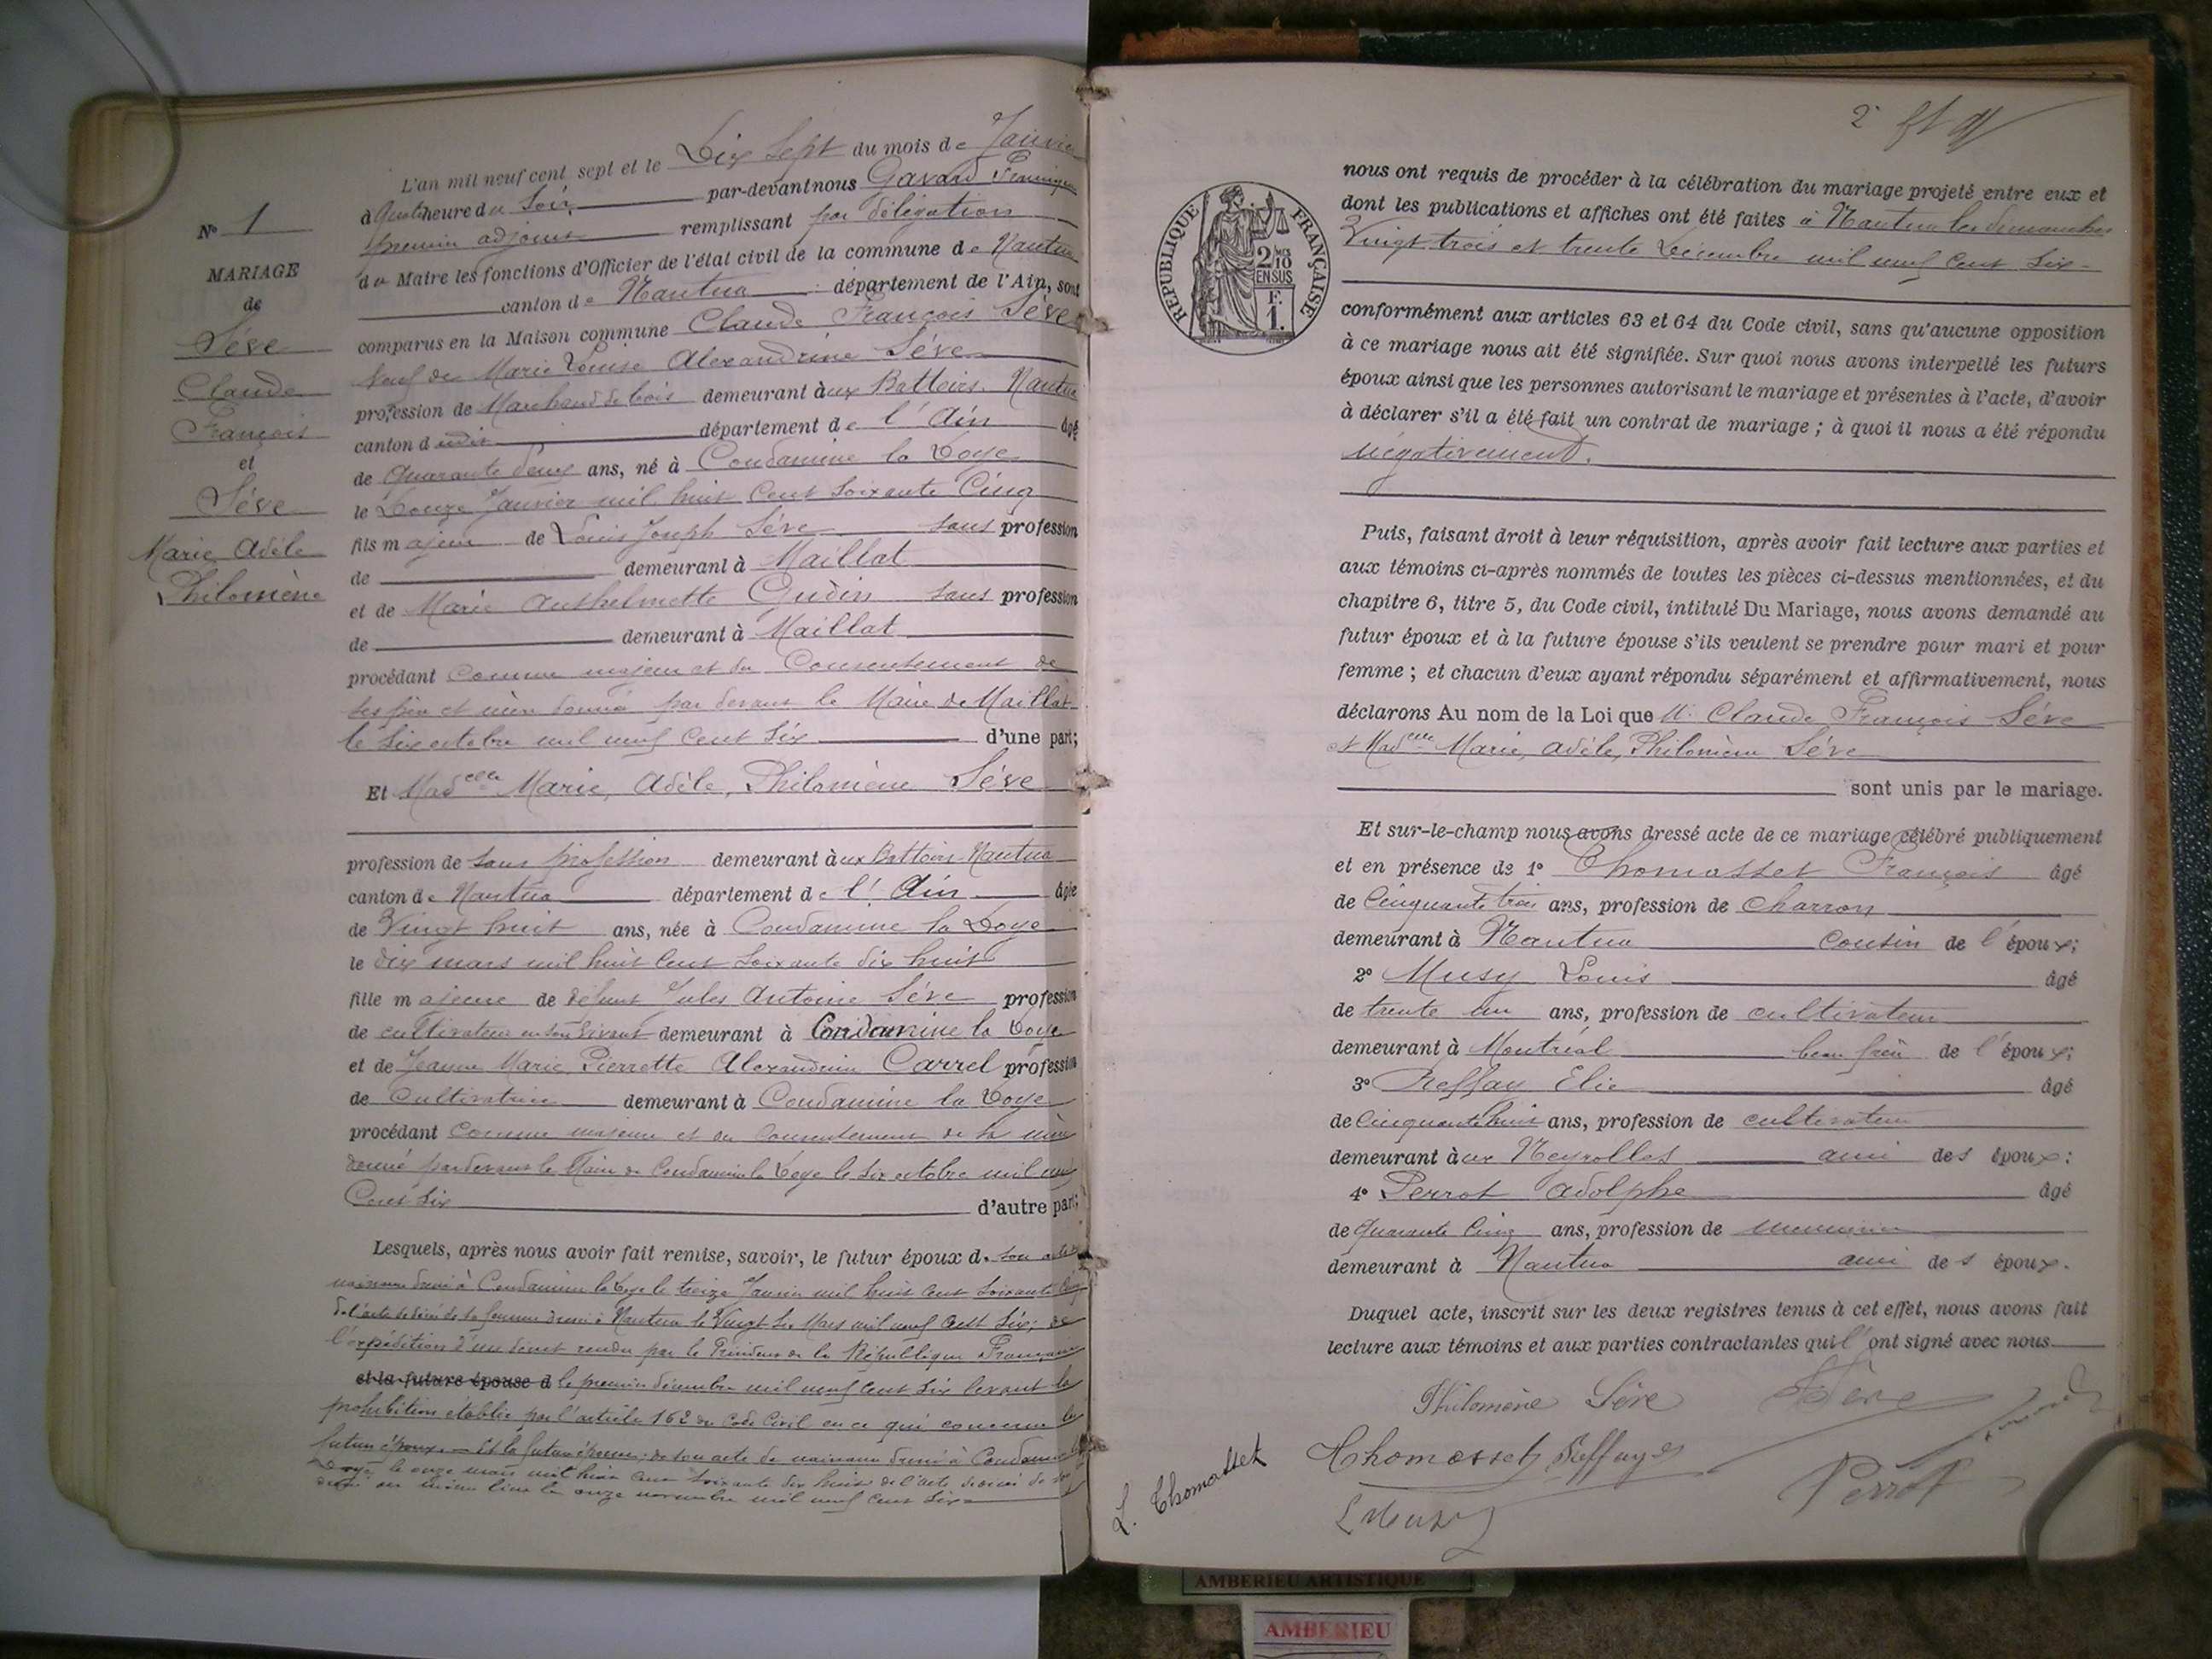 N° 1
MARIAGE
de
Séve
Claude
François
et
Séve
Marie Adèle
Philomène
L'an mil neuf cent sept et le Dix Sept du mois de Janvier
à Quatre heure du Soir, par-devant nous Gavard
premier adjoint remplissant par délégation
du Maire les fonctions d'Officier de l'état civil de la commune de Nantua
canton de Nantua département de l'Ain, sont
comparus en la Maison commune Claude François Séve
Veuf de Marie Louise Alexandrine Séve
profession de Marchand de bois demeurant aux Battoirs. Nantua
canton dudit département de l'Ain âgé
de Quarante deux ans, né à Condamine la Doye
le Douze Janvier mil huit cent soixante Cinq
fils majeur de Louis Joseph Séve sans profession
de demeurant à Maillat
et de Marie Anthelmette Gudin sans profession
de demeurant à Maillat
procédant comme majeur et du Consentement de
ses père et mère donné par devant le Maire de Maillat
le Six octobre mil neuf cent Six d'une part;
Et Madelle Marie, Adèle, Philomène Séve
profession de sans profession demeurant aux Battoirs Nantua
canton de Nantua département de l'Ain âgée
de Vingt huit ans, née à Condamine la Doye
le dix mars mil huit cent soixante dix huit
fille majeure de défunt Jules Antoine Séve profession
de cultivateur en son vivant demeurant à Condamine la Doye
et de Jeanne Marie Pierrette Alexandrine Carrel profession
de Cultivatrice demeurant à Condamine la Doye
procédant comme majeure et du consentement de sa mère
donné par devant le Maire de Condamine la Doye le Six octobre mil neuf
Cent Six d'autre part;
Lesquels, après nous avoir fait remise, savoir, le futur époux de son acte de
naissance dressé à Condamine la Doye le treize Janvier mil huit cent soixante Cinq
de l'acte de décès de sa femme dressé à Nantua le Vingt Six Mars mil neuf cent Six; de
l'expédition d'un décret rendu par le Président de la République Française
et la future épouse d le premier décembre mil neuf cent Six levant la
prohibition établie par l'article 162 du Code Civil en ce qui concerne les
futurs époux. — Et la future épouse: de son acte de naissance dressé à Condamine la
Doye le onze mars mil huit cent soixante dix huit de l'acte de décès de son
au même lieu le onze novembre mil neuf cent Six
2e
REPUBLIQUE FRANÇAISE
2/10 EN SUS
F. 1.
nous ont requis de procéder à la célébration du mariage projeté entre eux et
dont les publications et affiches ont été faites à Nantua les dimanches
Vingt trois et trente Décembre mil neuf cent Six
conformément aux articles 63 et 64 du Code civil, sans qu'aucune opposition
à ce mariage nous ait été signifiée. Sur quoi nous avons interpellé les futurs
époux ainsi que les personnes autorisant le mariage et présentes à l'acte, d'avoir
à déclarer s'il a été fait un contrat de mariage; à quoi il nous a été répondu
négativement.
Puis, faisant droit à leur réquisition, après avoir fait lecture aux parties et
aux témoins ci-après nommés de toutes les pièces ci-dessus mentionnées, et du
chapitre 6, titre 5, du Code civil, intitulé Du Mariage, nous avons demandé au
futur époux et à la future épouse s'ils veulent se prendre pour mari et pour
femme; et chacun d'eux ayant répondu séparément et affirmativement, nous
déclarons Au nom de la Loi que M. Claude François Séve
et Madelle Marie, Adèle, Philomène Séve
sont unis par le mariage.
Et sur-le-champ nous avons dressé acte de ce mariage célébré publiquement
et en présence de 1° Thomasset François âgé
de Cinquante trois ans, profession de Charron
demeurant à Nantua cousin de l'époux;
2° Musy Louis âgé
de trente un ans, profession de cultivateur
demeurant à Montréal beau frère de l'époux;
3° Reffay Elie âgé
de Cinquante huit ans, profession de cultivateur
demeurant aux Neyrolles ami des époux;
4° Perrot Adolphe âgé
de Quarante Cinq ans, profession de menuisier
demeurant à Nantua ami des époux.
Duquel acte, inscrit sur les deux registres tenus à cet effet, nous avons fait
lecture aux témoins et aux parties contractantes qui l'ont signé avec nous.
Philomène Séve Séve
Thomasset Reffay
L. Thomasset
L Musy Perrot
AMBERIEU ARTISTIQUE
AMBERIEU